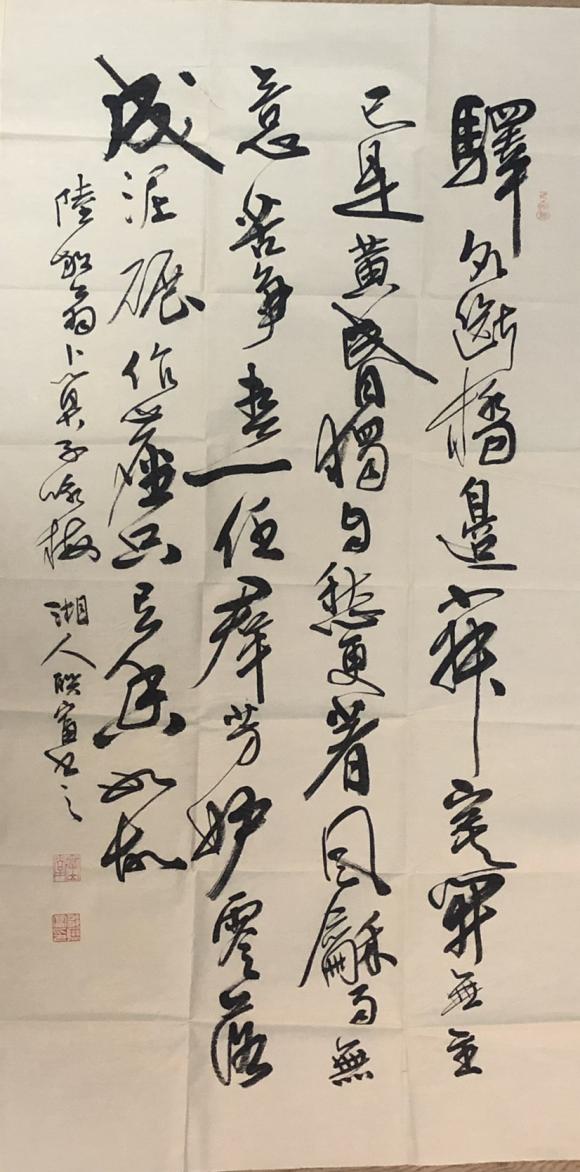 驛外斷橋邊寂寞開無主
已是黃昏獨自愁更著風龢雨無
意苦爭春一任羣芳妒零落
成泥碾作塵只有香如故
陸放翁卜算子詠梅 人书之